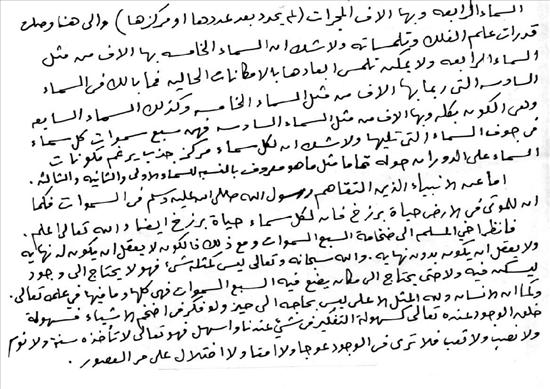 السماء الرابعه وبها الاف المجرات (لم يحدد بعد عددها او مركزها) والى هنا وصلت
قدرات عالم الفلك وتلمساته ولا شك ان السماء الخامسه بها الاف من مثل
السماء الرابعه ولا يمكن تلمس ابعادها بالامكانات الحاليه فما بالك فى السماء
السادسه التى ربما بها الاف من مثل السماء الخامسه وكذلك السماء السابعه
وهى الكون بكله وبها الاف من مثل السماء السادسه فهن سبع سموات كل سماء
فى جوف السماء التى تليها ولا شك ان لكل سماء مركز جذب يرغم مكونات
السماء على الدوران حوله تماما مثل ما هو معروف بالنسبه للسماء الاولى والثانيه والثالثه.
اما عن الانبياء الذين التقاهم رسول الله صلى الله عليه وسلم فى السموات فكما
ان للموتى فى الارض حياة برزخ فان لكل سماء حياة برزخ ايضا والله تعالى اعلم.
فانظر اخى المسلم الى ضخامة السبع السموات ومع ذلك فالكون لا يعقل ان يكون له نهايه
ولا يعقل ان يكون بدون نهايه. والله سبحانه وتعالى ليس كمثله شئ فهو لا يحتاج الى وجود
ليسكن فيه ولا حتى يحتاج الى مكان يضع فيه السبع السموات فهى كلها وما فيها فى علمه تعالى.
وكما ان الانسان وله المثل الاعلى ليس بحاجه الى حيز ولو فكر فى اضخم الاشياء فسهولة
خلق الوجود عنده تعالى كسهولة التفكير فى شئ عندنا واسهل فهو تعالى لا تأخذه سنة ولا نوم
ولا نصب ولا تعب فلا ترى فى الوجود عوجا ولا امتا ولا اختلال على مر العصور.